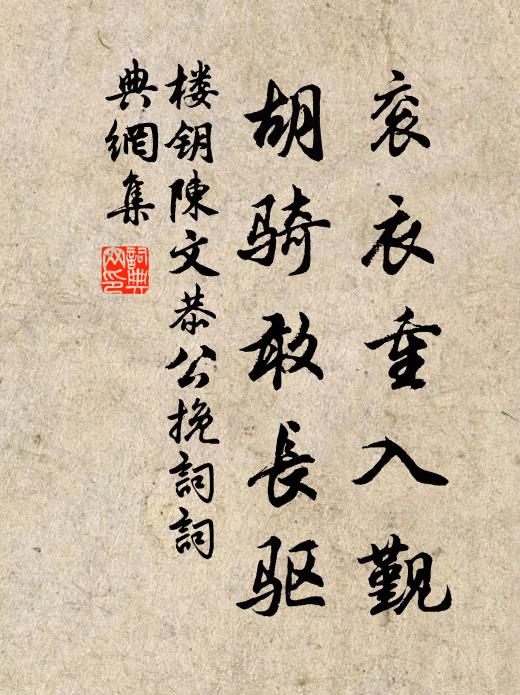 衮衣重入觐
胡骑敢長驱
楼钥陳文恭公挽詞詞
典網集
詞典
网印